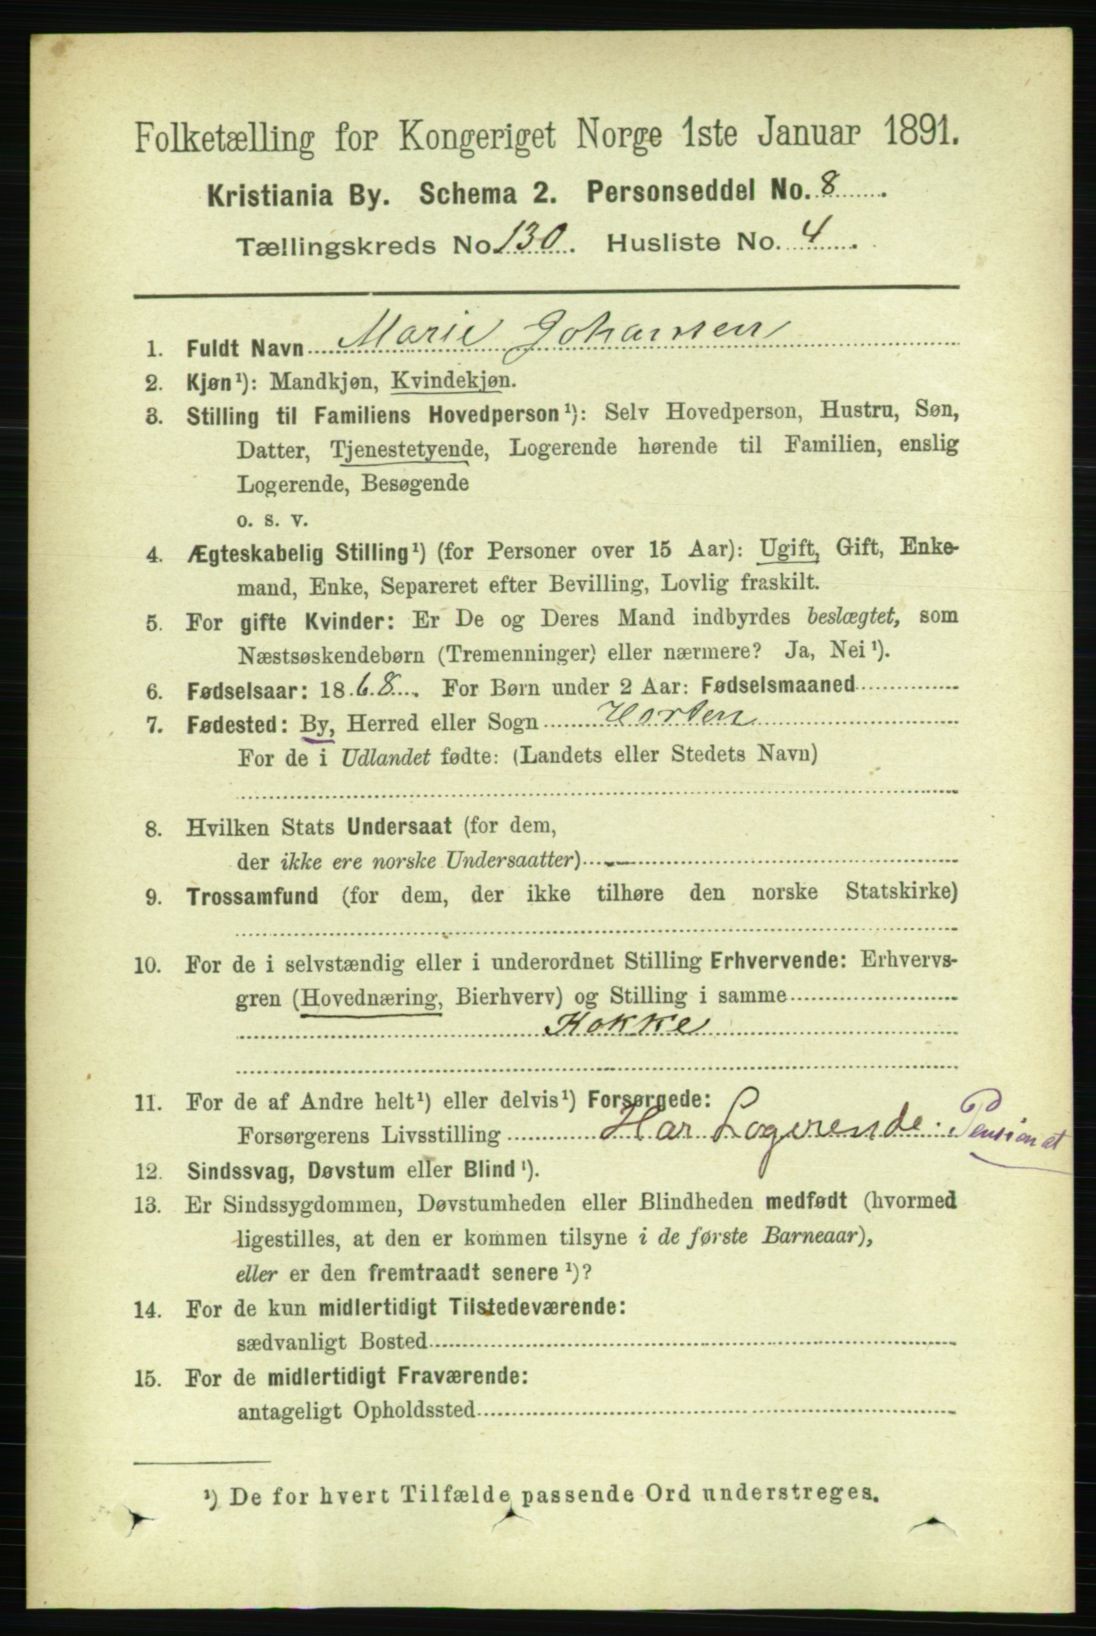 Folketælling for Kongeriget Norge 1ste Januar 1891.
Kristiania By. Schema 2. Personseddel No. 8
Tællingskreds No 130. Husliste No. 4
1. Fuldt Navn Marie Johansen
2. Kjøn¹): Mandkjøn, Kvindekjøn.
3. Stilling til Familiens Hovedperson¹): Selv Hovedperson, Hustru, Søn,
Datter, Tjenestetyende, Logerende hørende til Familien, enslig
Logerende, Besøgende
o. s. v.
4. Ægteskabelig Stilling¹) (for Personer over 15 Aar): Ugift, Gift, Enke-
mand, Enke, Separeret efter Bevilling, Lovlig fraskilt.
5. For gifte Kvinder: Er De og Deres Mand indbyrdes beslægtet, som
Næstsøskendebørn (Tremenninger) eller nærmere? Ja, Nei¹).
6. Fødselsaar: 1868. For Børn under 2 Aar: Fødselsmaaned
7. Fødested: By, Herred eller Sogn Horten
For de i Udlandet fødte: (Landets eller Stedets Navn)
8. Hvilken Stats Undersaat (for dem,
der ikke ere norske Undersaatter)
9. Trossamfund (for dem, der ikke tilhøre den norske Statskirke)
10. For de i selvstændig eller i underordnet Stilling Erhvervende: Erhvervs-
gren (Hovednæring, Bierhverv) og Stilling i samme
Kokke
11. For de af Andre helt¹) eller delvis¹) Forsørgede:
Forsørgerens Livsstilling Har Logerende. Pensionat
12. Sindssvag, Døvstum eller Blind¹).
13. Er Sindssygdommen, Døvstumheden eller Blindheden medfødt (hvormed
ligestilles, at den er kommen tilsyne i de første Barneaar),
eller er den fremtraadt senere¹)?
14. For de kun midlertidigt Tilstedeværende:
sædvanligt Bosted
15. For de midlertidigt Fraværende:
antageligt Opholdssted
¹) De for hvert Tilfælde passende Ord understreges.